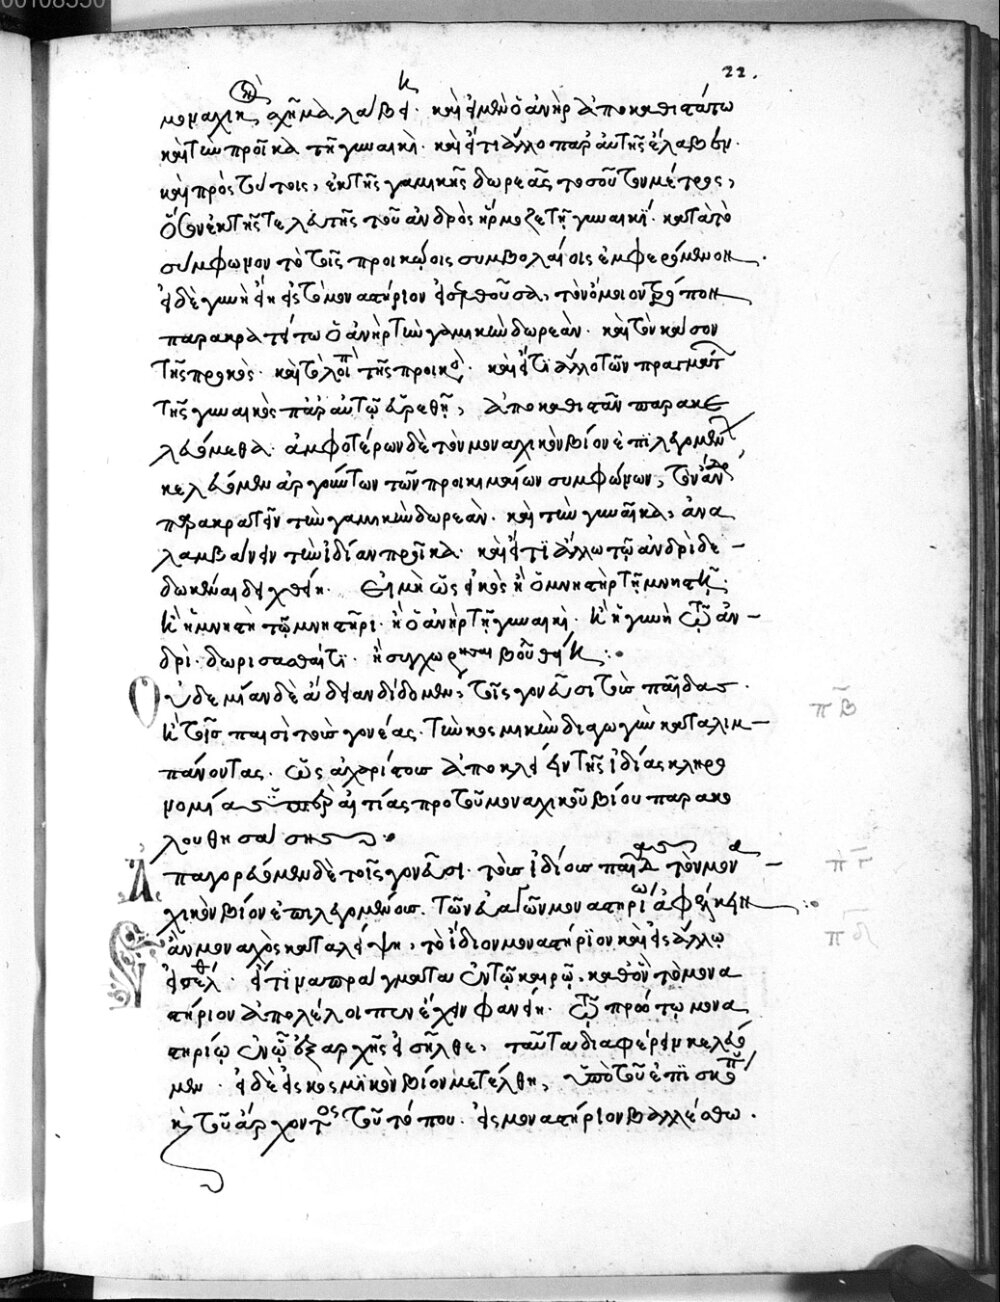 22.
μοναχικὸν σχῆμα λάβοι. καὶ εἰ μὲν ὁ ἀνὴρ ἀποκαθιστάτω
καὶ τὴν προῖκα τῇ γυναικὶ. καὶ εἴ τι ἄλλο παρ' αὐτῆς ἔλαβεν.
καὶ πρὸς τούτοις, ἐκ τῆς γαμικῆς δωρεᾶς τοσοῦτον μέρος,
ὅσον ἐκ τῆς τελευτῆς τοῦ ἀνδρὸς ἥρμοζε τῇ γυναικὶ. κατὰ τὸ
σύμφωνον τὸ τοῖς προικώοις συμβολαίοις ἐμφερόμενον.
εἰ δὲ γυνὴ εἴη εἰς τὸ μοναστήριον εἰσελθοῦσα, τὸν ὅμοιον τρόπον
παρακρατείτω ὁ ἀνὴρ τὴν γαμικὴν δωρεὰν. καὶ τὸν κάσον
τῆς προικὸς. καὶ τὸ λοιπὸν τῆς προικὸς. καὶ εἴ τι ἄλλο τῶν πραγμάτων
τῆς γυναικὸς παρ' αὐτῷ εὑρεθῇ, ἀποκαθιστᾶν παρακε
λευόμεθα. ἀμφοτέρων δὲ τὸν μοναχικὸν βίον ἐπιλεγομένων
κελεύομεν ἀργούντων τῶν προικιμαίων συμφώνων, τὸν ἄνδρα
παρακρατεῖν τὴν γαμικὴν δωρεὰν. καὶ τὴν γυναῖκα, ἀνα
λαμβάνειν τὴν ἰδίαν προῖκα. καὶ εἴ τι ἄλλω τῷ ἀνδρὶ δε –
δωκέναι δειχθείη. Εἰ μὴ ὡς εἰκὸς ἢ ὁ μνηστὴρ τῇ μνηστῇ.
ἢ ἡ μνηστὴ τῷ μνηστῆρι. ἢ ὁ ἀνὴρ τῇ γυναικὶ. ἢ ἡ γυνὴ τῷ ἀν –
δρὶ. δωρίσασθαί τι. ἢ συγχωρῆσαι βουληθείη :.
Οὐδεμίαν δὲ ἄδειαν δίδομεν, τοῖς γονεῦσι τοὺς παῖδας.
ἢ τοῖς παισὶ τοὺς γονέας. τὴν κοσμικὴν διαγωγὴν καταλιμ –
πάνοντας. ὡς ἀχαρίστους ἀποκλείειν τῆς ἰδίας κληρο
νομίας ὑπὲρ αἰτίας πρὸ τοῦ μοναχικοῦ βίου παρακο
λουθησάσης.
πβ
Ἀπαγορεύομεν δὲ τοῖς γονεῦσι. τοὺς ἰδίους παῖδας τὸν μονα –
χικὸν βίον ἐπιλεγομένους. τῶν εὐαγῶν μοναστηρίων ἀφέλκειν :.
πγ
Ἐὰν μοναχὸς καταλείψῃ, τὸ ἴδιον μοναστήριον καὶ εἰς ἄλλο
εἰσέλθῃ. εἴ τινα πράγματα ἐν τῷ καιρῷ. καθ' ὃν τὸ μονα
στήριον ἀπολέλοιπεν ἔχειν φανείη. τῷ πρώτῳ μονα
στηρίῳ ἐν ᾧ ἐξ ἀρχῆς εἰσῆλθε, ταῦτα διαφέρειν κελεύο
μεν. εἰ δὲ εἰς κοσμικὸν βίον μετέλθῃ, ὑπὸ τοῦ ἐπισκόπου
ἢ τοῦ ἄρχοντος τοῦ τόπου. εἰς μοναστήριον βαλλέσθω.
πδ